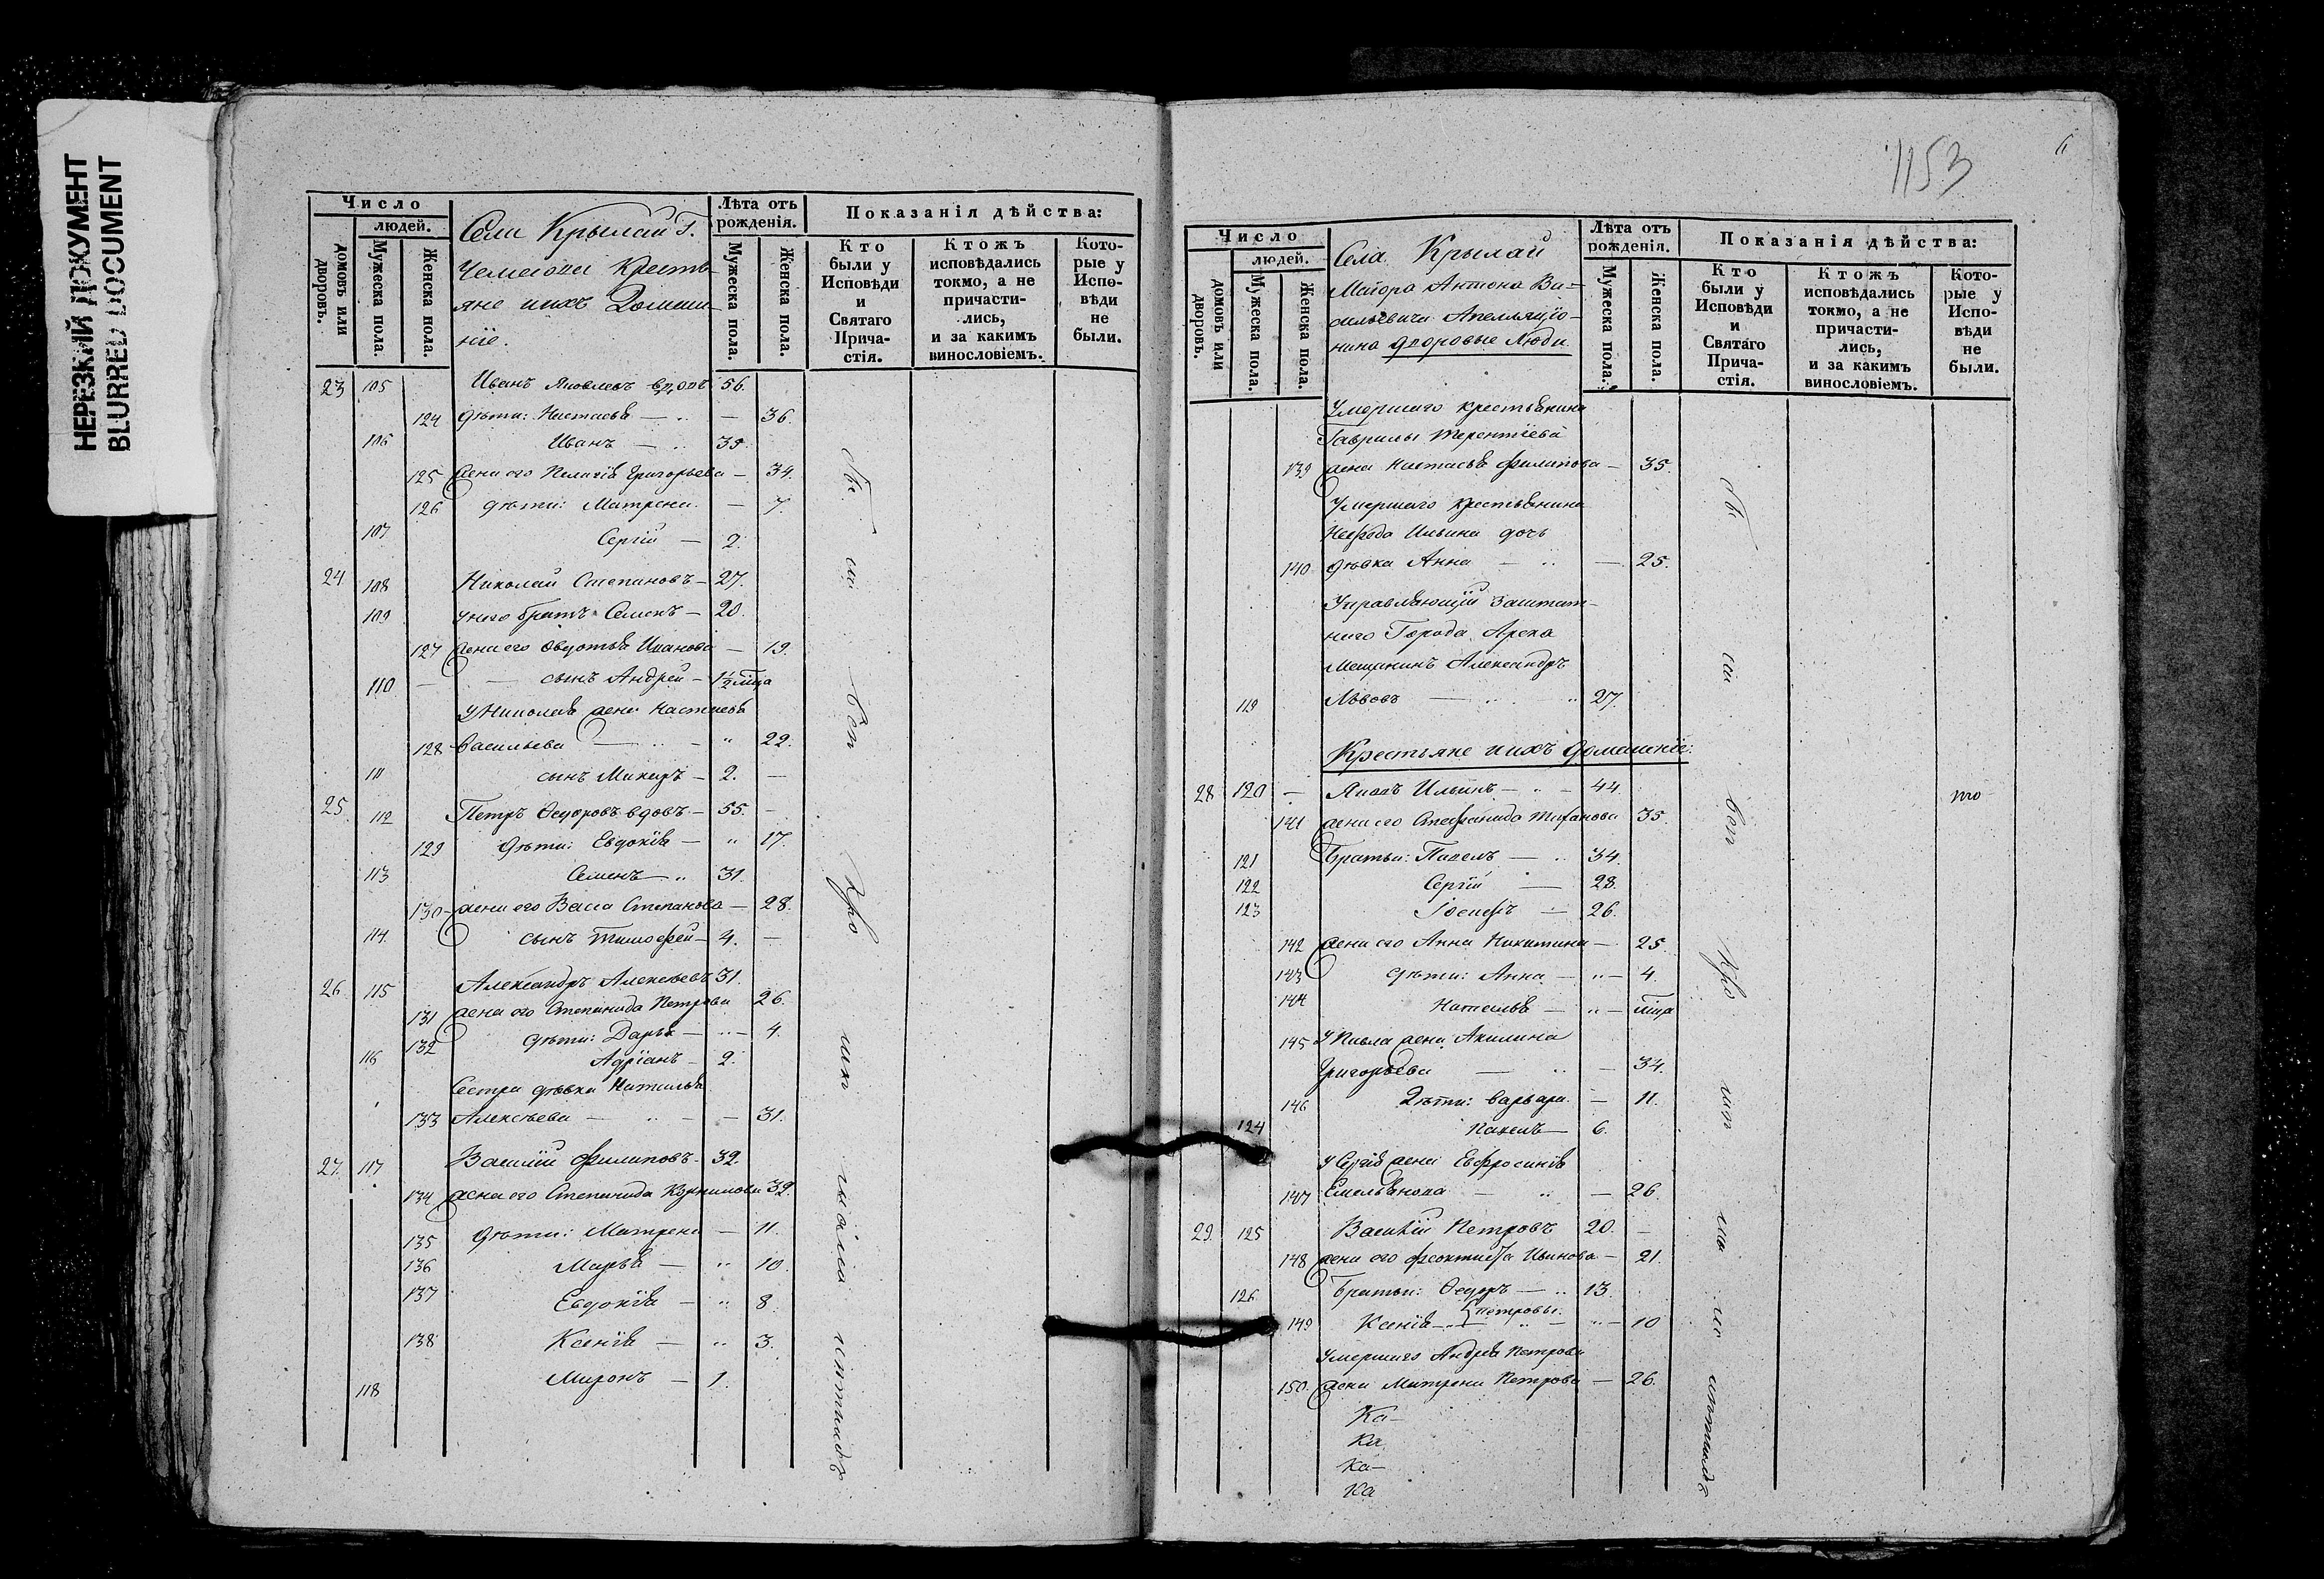 НЕРЕЗКИЙ ДОКУМЕНТ
BLURRED DOCUMENT
Число
домовъ или дворовъ.
людей.
Мужеска пола.
Женска пола.
Села Крылай Г.
Кресть-
яне ихъ Домаш-
ніе.
Лѣта отъ рожденія.
Мужеска пола.
Женска пола.
Показанія дѣйства:
Кто были у Исповѣди и Святаго Прича-стія.
Ктожъ исповѣдались токмо, а не причасти-лись, и за какимъ винословіемъ.
Кото-рые у Испо-вѣди не были.
23 105 Иванъ Яковлевъ вдовъ 56.
124 дѣти: Настасья — — 36.
106 Иванъ — 35.
125 жена его Пелагія Григорьева — 34.
126 дѣти: Матрена — 7.
107 Сергій — 2.
24 108 Николай Степановъ — 27.
109 у него братъ Семенъ — 20.
127 жена его Овдотья Иванова — 19.
110 — — сынъ Андрей — 1½ мѣца
У Николая жена Настасья
128 Васильева — " 22.
111 сынъ Макаръ — 2. —
25 112 Петръ Ѳедоровъ вдовъ — 55. —
129 дѣти: Евдокія — " 17.
113 Семенъ — 31.
130 жена его Васса Степанова — 28.
114. сынъ Тимофей — 4. —
26 115 Александръ Алексѣевъ 31.
131 жена его Степанида Петрова 26.
132 дѣти: Дарья — 4.
116 Адріанъ — 2.
Сестра дѣвка Наталья
133 Алексѣева — — 31.
27. 117. Василій Филиповъ — 32.
134 жена его Степанида Корнилова 32.
135 дѣти: Матрена — 11.
136 Марья — " 10.
137 Евдокія — " 8.
138 Ксенія — " 3.
118 Миронъ — 1.
1153
6
Число
домовъ или дворовъ.
людей.
Мужеска пола.
Женска пола.
Села Крылай
Маіора Антона Ва-
сильевича Апелляціо-
нина дворовые Люди.
Лѣта отъ рожденія.
Мужеска пола.
Женска пола.
Показанія дѣйства:
Кто были у Исповѣди и Святаго Прича-стія.
Ктожъ исповѣдались токмо, а не причасти-лись, и за какимъ винословіемъ.
Кото-рые у Испо-вѣди не были.
Умершаго крестьянина
Гаврилы Терентіева
139 жена Настасья Филипова — 35.
Умершаго крестьянина
Ильина дочь
140 дѣвка Анна — — 25.
Управляющій Заштат-
наго Города Арска
Мещанинъ Александръ
119 Львовъ — 27.
Крестьяне и ихъ домашніе:
28 120 — Яковъ Ильинъ — 44.
141 жена его Стефанида 35.
121 Братья: Павелъ — 34.
122 Сергій — 28.
123 Іосифъ — 26.
142 жена его Анна Никитина — 25.
143 дѣти: Анна — 4.
144 Наталья — мѣца
145 У Павла жена Акилина
Григорьева — — 34.
146 Дѣти: Варвара — 11.
124 Павелъ — 6.
У Сергія жена Евфросинія
147 Емельянова — — 26
29 125 Василій Петровъ 20. —
148 жена его Феоктиста Иванова — 21.
126 Братья: Ѳедоръ — 13.
Петровы.
149 Ксенія — 10
Умершаго Андрея Петрова
150. жена Матрена Петрова — 26.
Ка—
Ка
Ка—
Ка